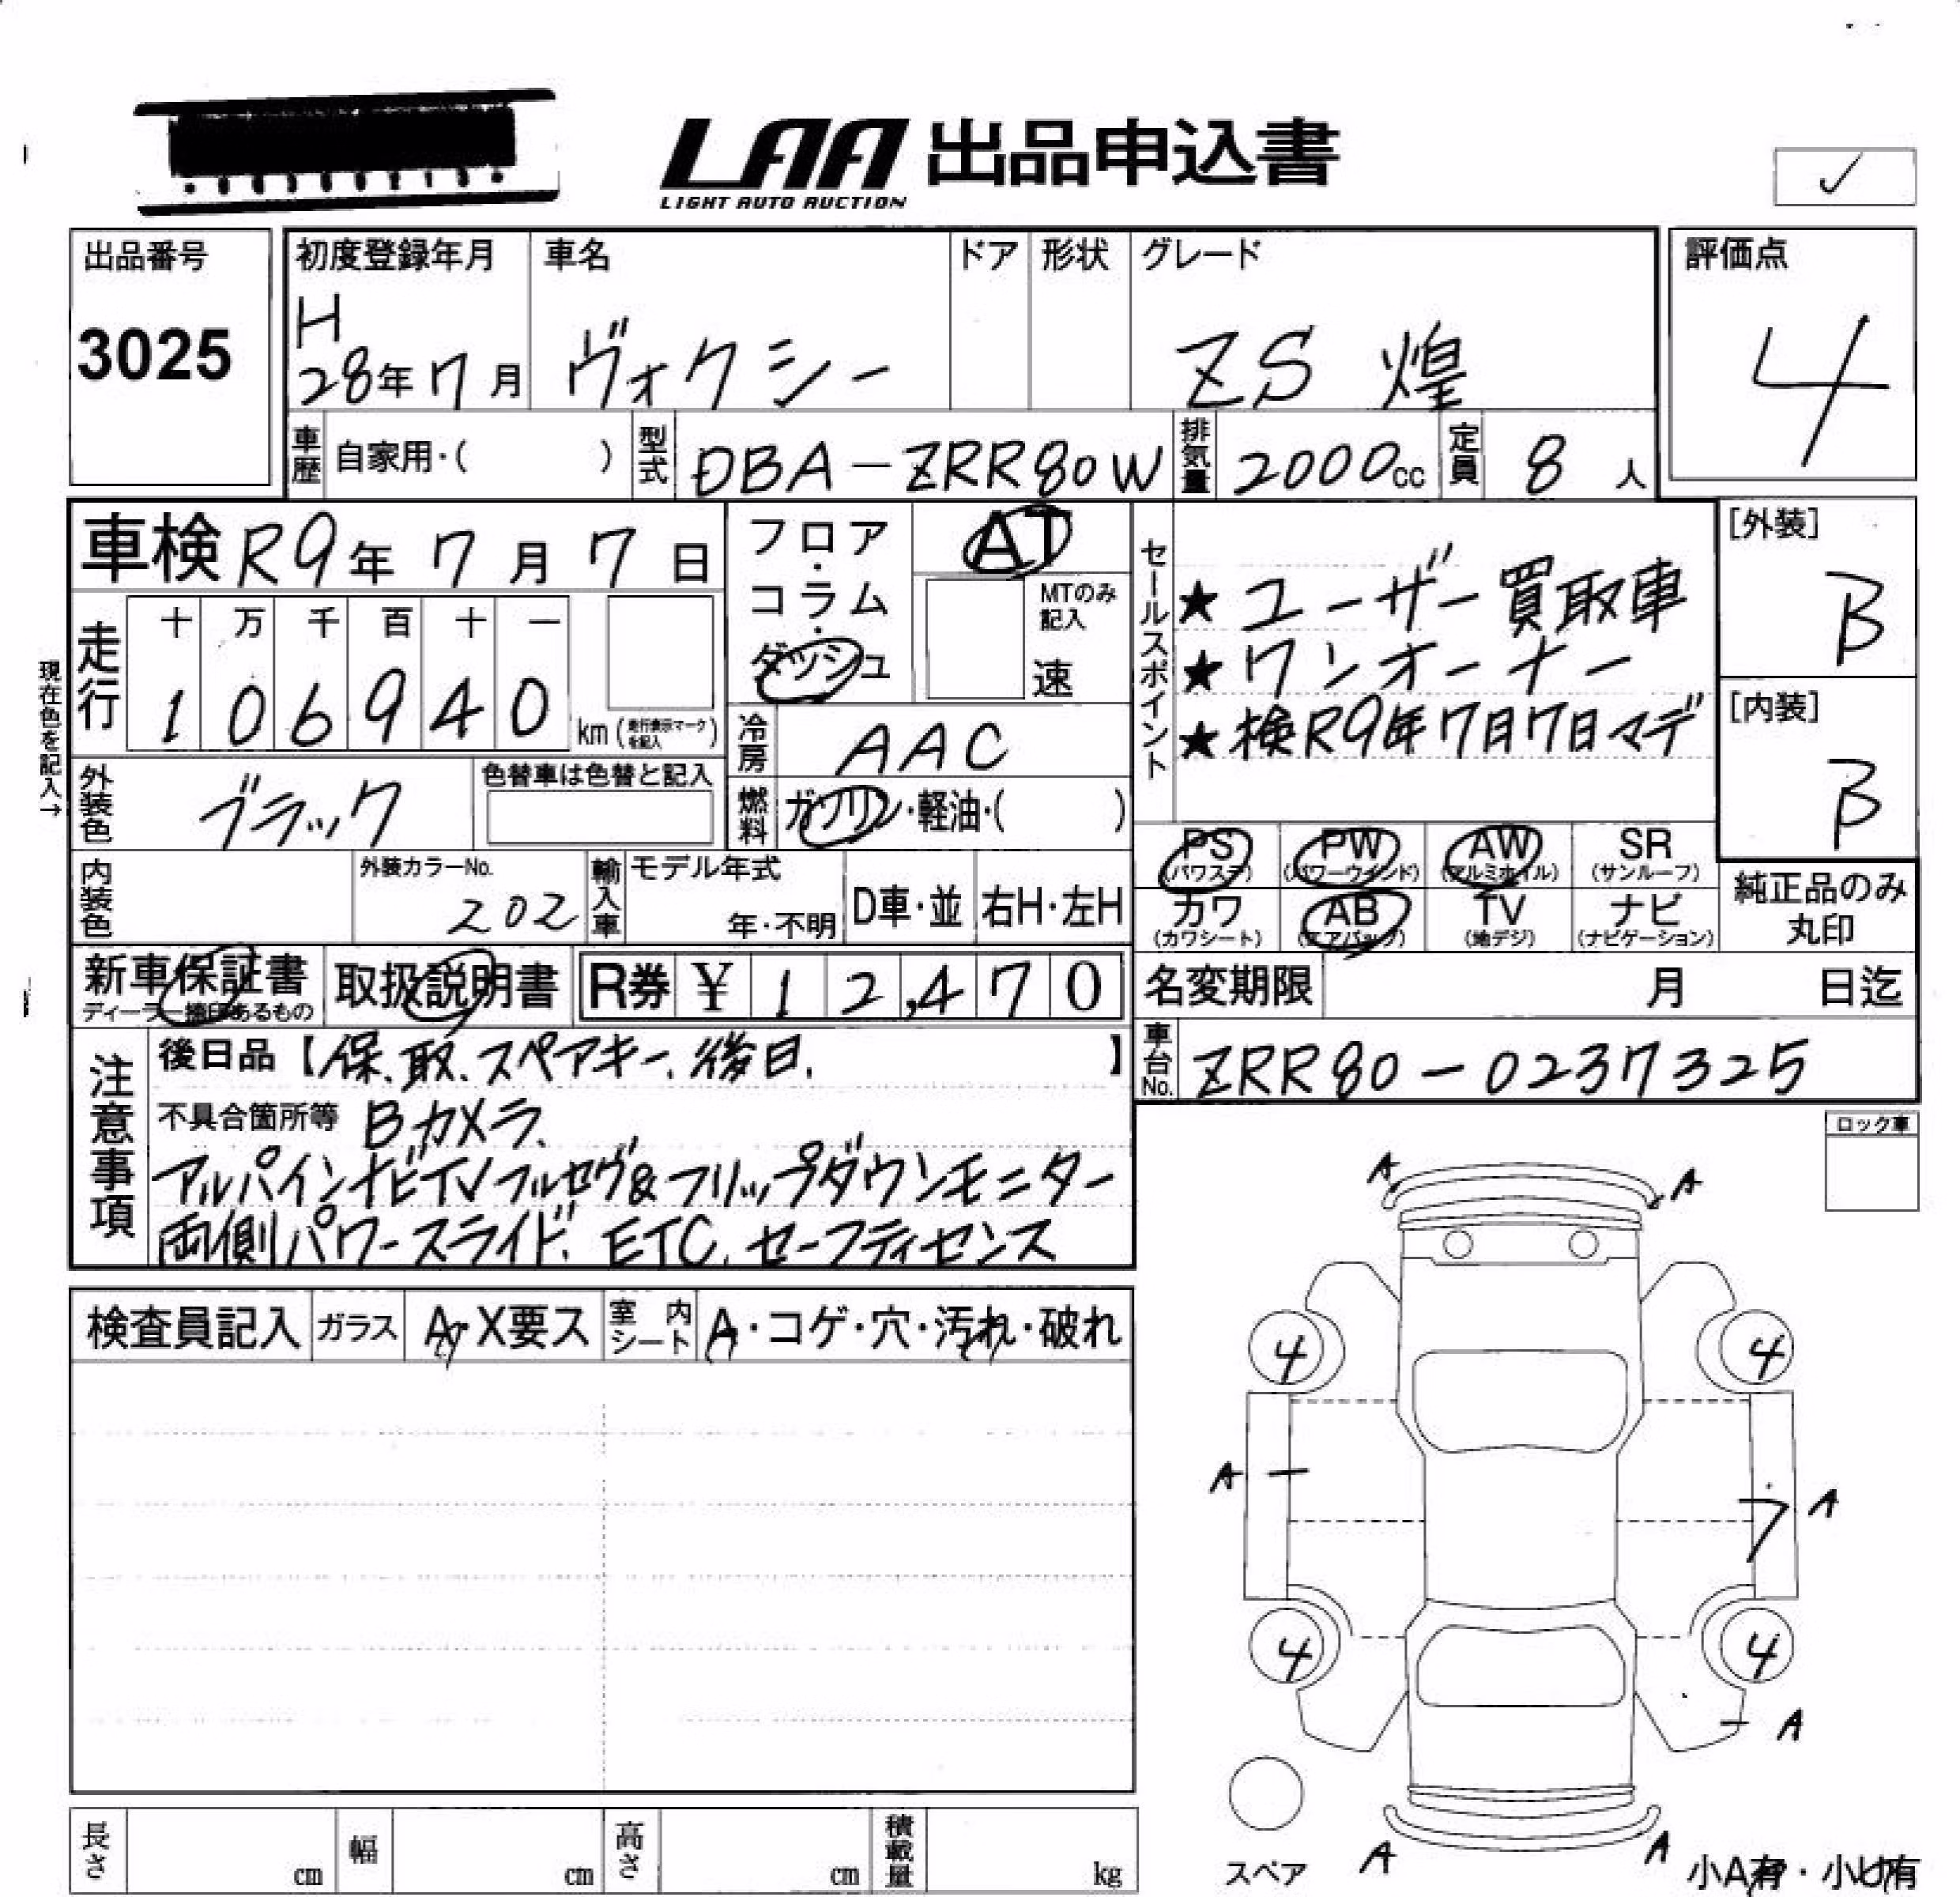 LAA 出品申込書
LIGHT AUTO AUCTION
✓
出品番号
3025
初度登録年月 車名 ドア 形状 グレード
H
28年7月 ヴォクシー ZS 煌
評価点
4
車歴 自家用・( ) 型式 DBA-ZRR80W 排気量 2000cc 定員 8人
車検 R9年 7月 7日
フロア・コラム・ダッシュ
AT
MTのみ記入
速
セールスポイント
★ユーザー買取車
★ワンオーナー
★検R9年7月7日マデ
[外装]
B
[内装]
B
現在色を記入→
走行 十 万 千 百 十 一
1 0 6 9 4 0 km (走行表示マークを記入)
冷房 AAC
燃料 ガソリン・軽油・( )
外装色 ブラック 色替車は色替と記入
PS (パワステ) PW (パワーウインド) AW (アルミホイル) SR (サンルーフ)
カワ (カワシート) AB (エアバッグ) TV (地デジ) ナビ (ナビゲーション)
純正品のみ丸印
内装色 外装カラーNo. 202
輸入車 モデル年式 年・不明 D車・並 右H・左H
新車保証書 ディーラー捺印あるもの 取扱説明書 R券 ¥ 12,470
名変期限 月 日迄
車台No. ZRR80-0237325
注意事項
後日品【保、取、スペアキー、後日、】
不具合箇所等 Bカメラ、
アルパインナビTVフルセグ&フリップダウンモニター
両側パワースライド、ETC、セーフティセンス
ロック車
検査員記入 ガラス A・X要ス 室内シート A・コゲ・穴・汚れ・破れ
A A
4 4
A A
4 4
A
A A
スペア
小A有・小U有
長さ cm 幅 cm 高さ cm 積載量 kg